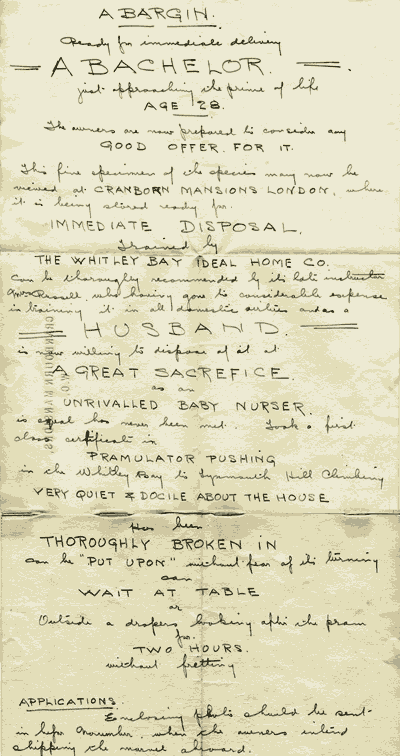 A BARGIN.
Ready for immediate delivery
A BACHELOR.
just approaching the prime of life
AGE 28.
The owners are now prepared to consider any
GOOD OFFER FOR IT.
This fine specimen of the species may now be
viewed at CRANBORN MANSIONS LONDON, where
it is being stored ready for.
IMMEDIATE DISPOSAL.
Trained by
THE WHITLEY BAY IDEAL HOME CO.
Can be thoroughly recommended by its late instructor
Russell, who having gone to considerable expense
in training it in all domestic and as a
HUSBAND.
is now willing to dispose of it at
A GREAT SACREFICE.
as an
UNRIVALLED BABY NURSER.
is equal has never been met. Took a first
class certificate in
PRAMULATOR PUSHING
in the Whitley Bay to Hill Climbing
VERY QUIET & DOCILE ABOUT THE HOUSE
Has been
THOROUGHLY BROKEN IN
can be "PUT UPON" without fear of its turning
can
WAIT AT TABLE
or
Outside a drapers looking after the pram
for
TWO HOURS.
without fretting
APPLICATIONS.
Enclosing photo should be sent
in before November, when the owners intend
shipping the marvel abroad.